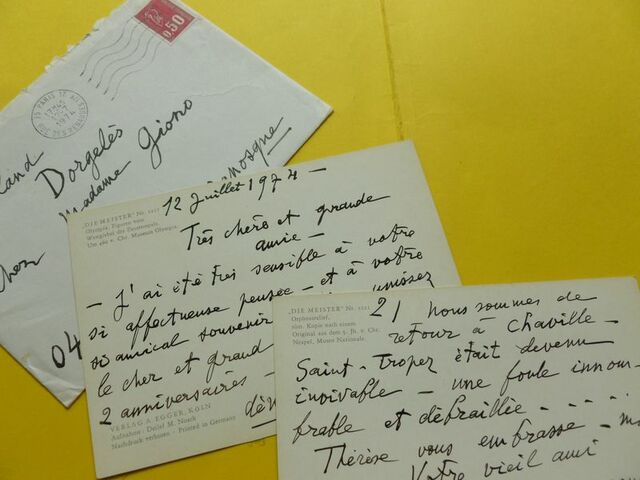 0.50
PARIS
1974
Dorgelès
Madame Giono
chez
04
"DIE MEISTER" Nr.
Olympia, Figuren vom
Westgiebel des Zeustempels.
Um 460 v. Chr. Museum Olympia.
12 Juillet 1974 -
Très chère et grande
amie -
- J'ai été très sensible à votre
si affectueuse pensée - et à votre
si amical souvenir unissez
le cher et grand
2 anniversaires -
VERLAG A. EGGER, KÖLN
Aufnahme: Detlef M. Noack
Nachdruck verboten - Printed in Germany
"DIE MEISTER" Nr.
Orpheusrelief,
röm. Kopie nach einem
Original aus dem 5. Jh. v. Chr.
Neapel, Museo Nazionale
2) nous sommes de
retour à Chaville -
Saint-Tropez était devenu
invivable - une foule innom-
brable et débraillée - - - -
Thérèse vous embrasse -
Votre vieil ami